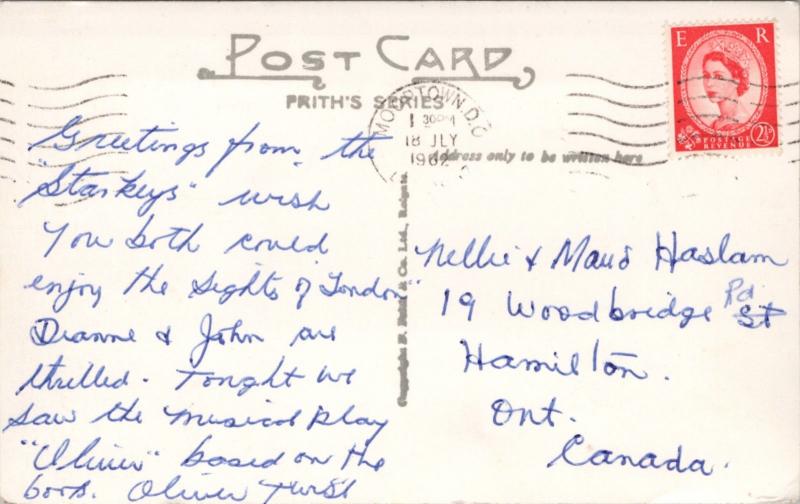 POST CARD
FRITH'S SERIES
Address only to be written here
E R
POSTAGE
REVENUE
2½D
1 30PM
18 JLY
1962
Greetings from the
"Starkeys" wish
You both could
enjoy the Sights of London"
Dianne & John are
thrilled. Tonight we
saw the musical play
"Oliver" based on the
book. Oliver Twist
Copyright F. Frith & Co. Ltd., Reigate.
Nellie & Maud Haslam
19 Woodbridge St Rd
Hamilton.
Ont.
Canada.